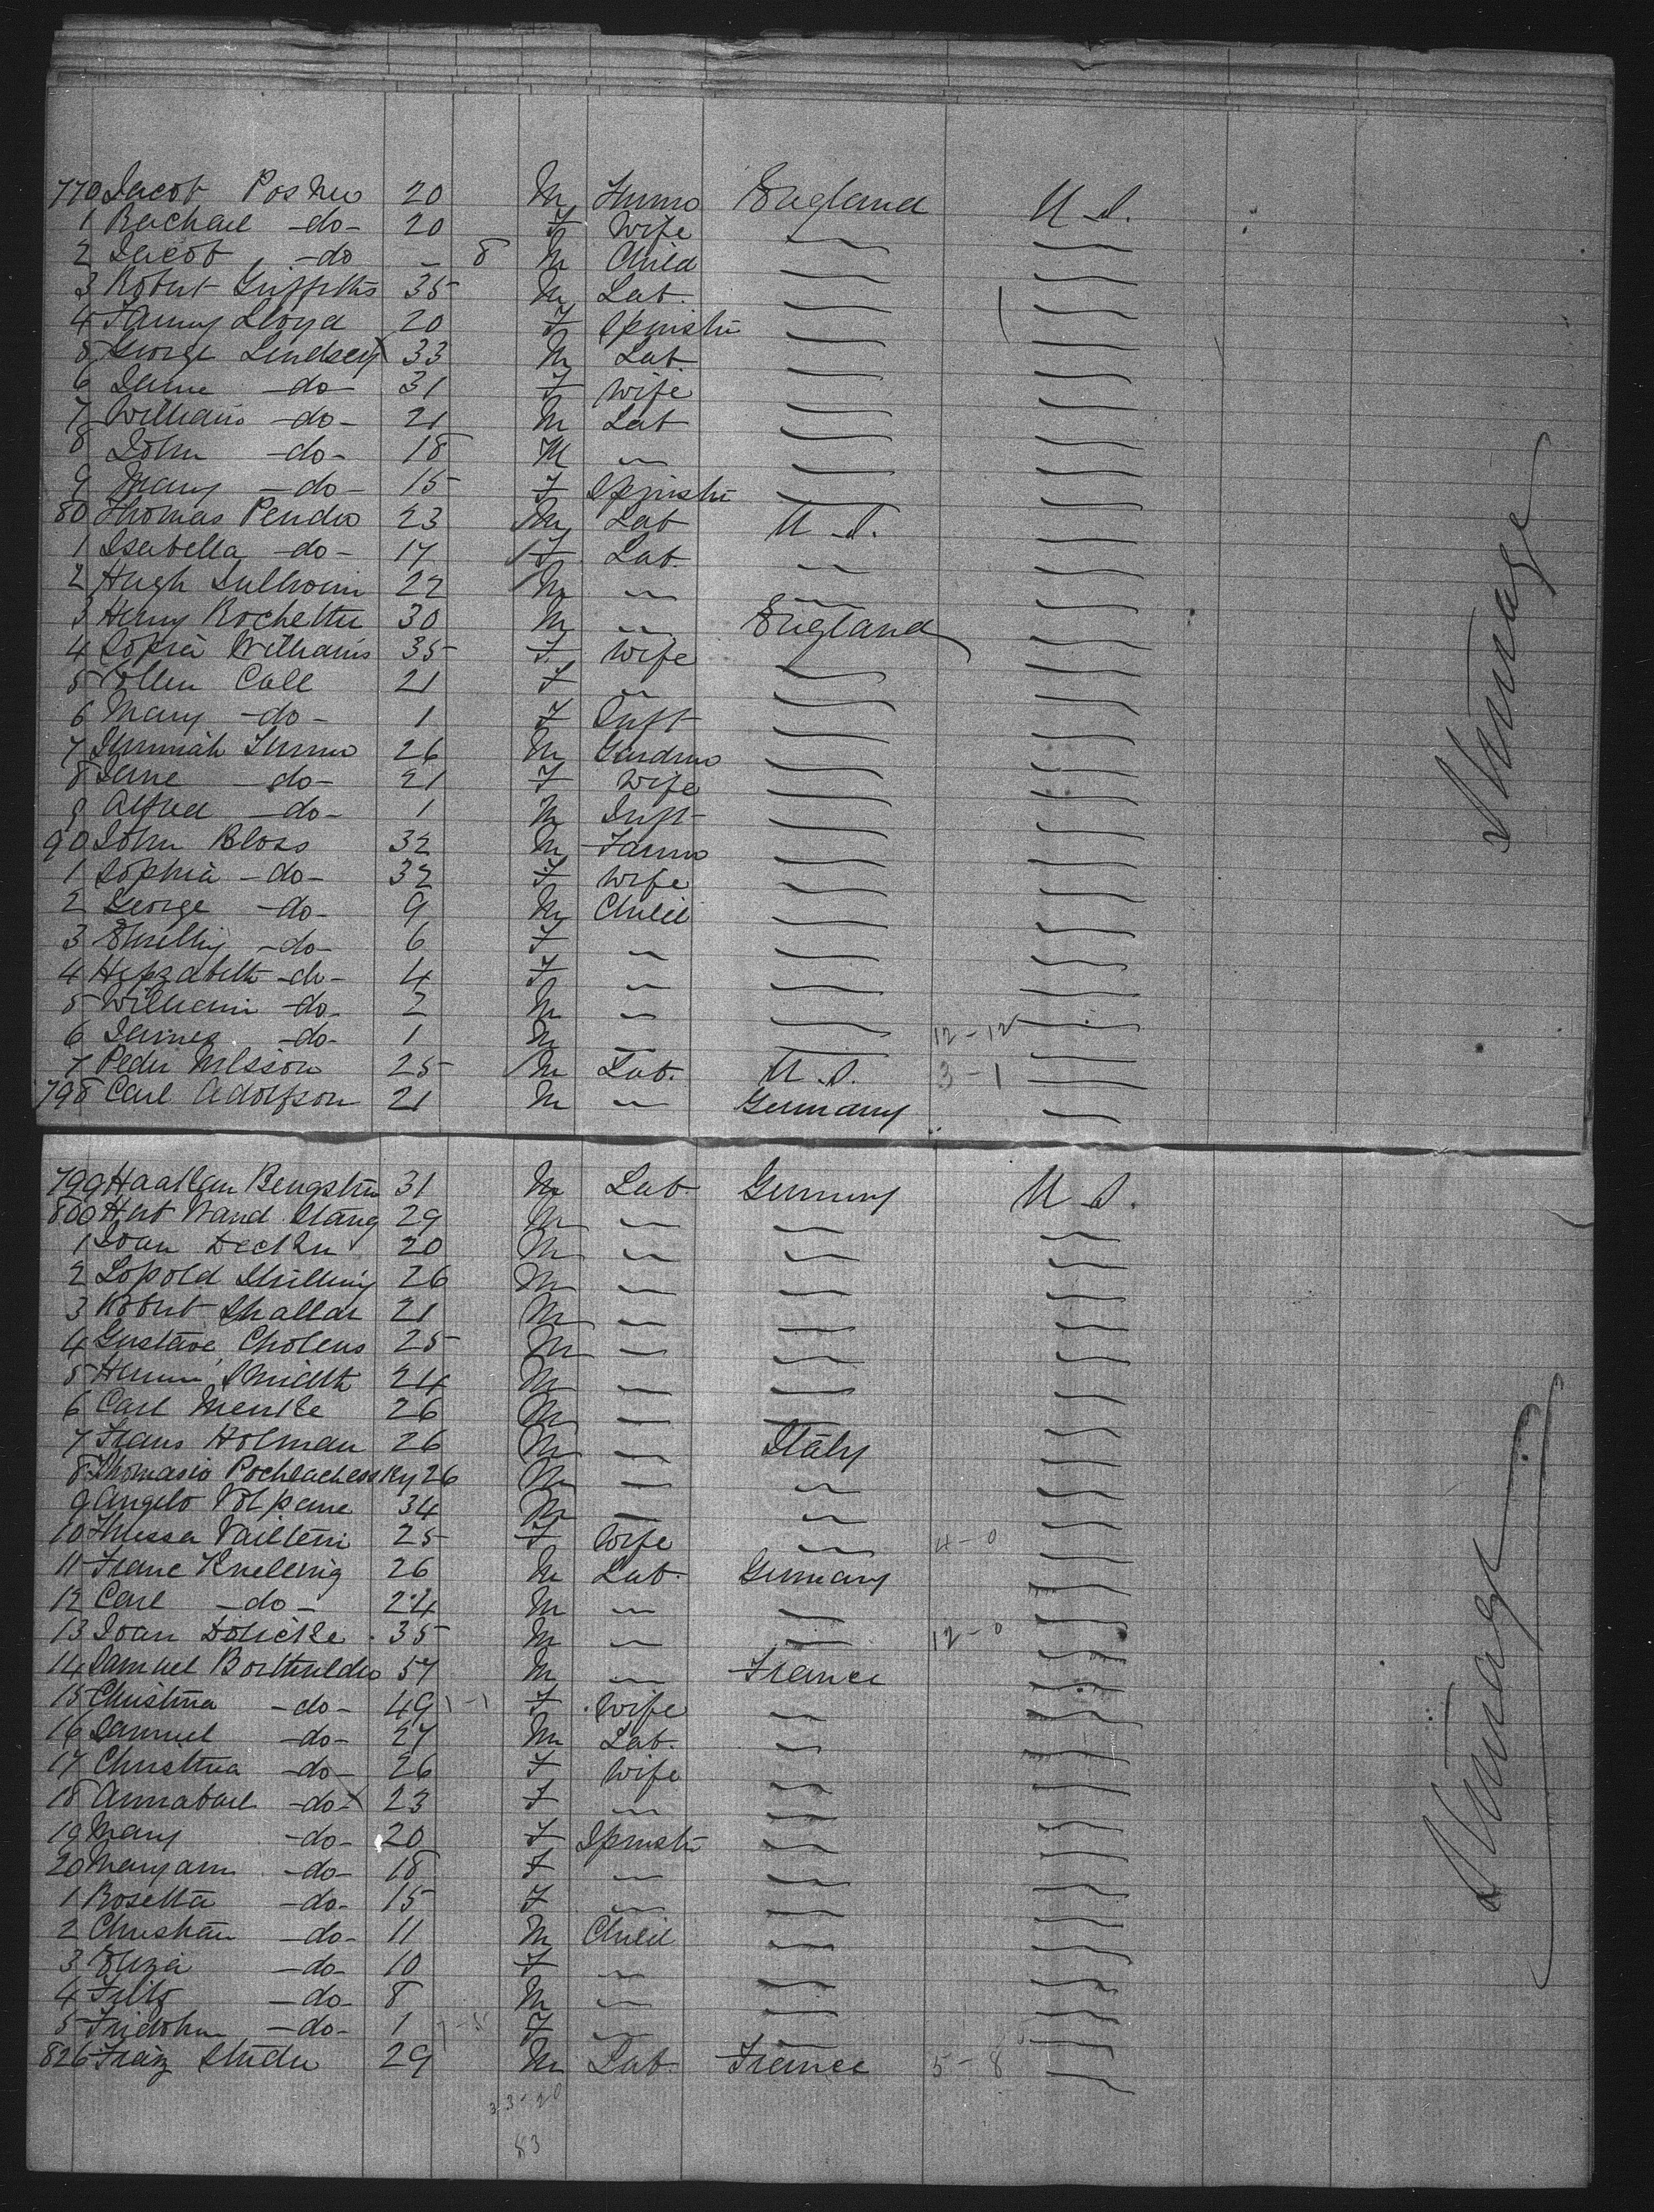 770 Jacob Posner 20 M Farmer England U.S.
1 Rachael -do- 20 F Wife
2 Jacob -do - 8 M Child
3 Robert Griffiths 35 M Lab.
4 Fanny Lloyd 20 F Spinster
5 George Lindsey X 33 M Lab.
6 Jane -do- 31 F Wife
7 William -do- 21 M Lab
8 John -do- 18 M "
9 Mary -do- 15 F Spinster
80 Thomas Pender 23 M Lab U.S.
1 Isabella -do- 17 F Lab. "
2 Hugh 22 M " "
3 Henry Rochette 30 M " England
4 Sophia Williams 35 F Wife
5 Ellen Call 21 F "
6 Mary -do- 1 F Inft
7 Jeremiah Turner 26 M Gardner
8 Jane -do- 21 F Wife
9 Alfred -do- 1 M Inft
90 John Bloss 32 M Farmer
1 Sophia -do- 32 F Wife
2 George -do- 9 M Child
3 Emily -do- 6 F "
4 Hepzabeth -do- 4 F "
5 William -do- 2 M "
6 James -do- 1 M " 12-12
7 Peder Nilsson 25 M Lab. U.S. 3-1
798 Carl Adolfson 21 M " Germany
Steerage
799 Haakan Bengsten 31 M Lab. Germany U.S.
800 29 M " "
1 Joan Decker 20 M " "
2 Lopold 26 M " "
3 Robert 21 M " "
4 Gustave Cholens 25 M " "
5 24 M " "
6 Carl Menke 26 M " "
7 Frans Holman 26 M " Italy
8 26 M " "
9 Angelo Volpane 34 M " "
10 25 F Wife " 4-0
11 Franc Knelling 26 M Lab. Germany
12 Carl -do- 24 M " "
13 Joan 35 M " " 12-0
14 Samuel 57 M " France
15 Christina -do- 49 1-1 F Wife "
16 Samuel -do- 27 M Lab. "
17 Christina -do- 26 F Wife "
18 Annabael -do- X 23 F " "
19 Mary -do- 20 F Spinster "
20 Maryann -do- 18 F " "
1 Rosetta -do- 15 F " "
2 Christian -do- 11 M Child "
3 Eliza -do- 10 F " "
4 Fritz -do- 8 M " "
5 -do- 1 F " "
826 Franz 29 M Lab. France 5-8
83
Steerage